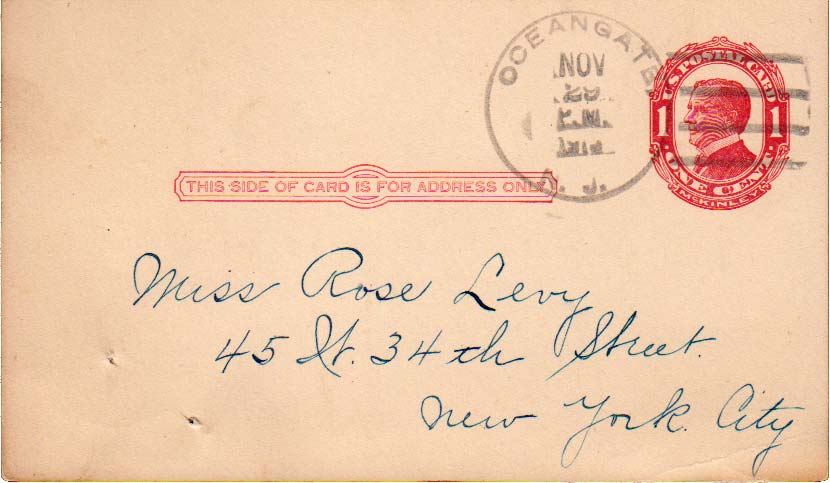 OCEANGATE
NOV
29
P.M.
N. J.
U.S. POSTAL CARD
1 1
ONE CENT
McKINLEY
THIS SIDE OF CARD IS FOR ADDRESS ONLY
Miss Rose Levy
45 W. 34th Street.
New York City